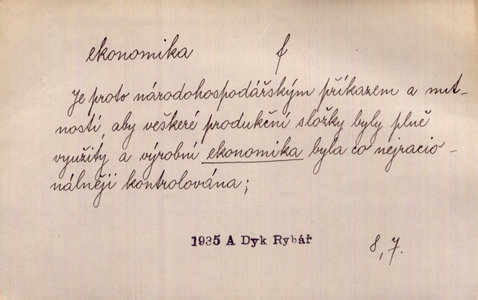 ekonomika f
Je proto národohospodářským příkazem a nut-
ností, aby veškeré produkční složky byly plně
využity a výrobní ekonomika byla co nejracio-
nálněji kontrolována;
1935 A Dyk Rybář 8,7.